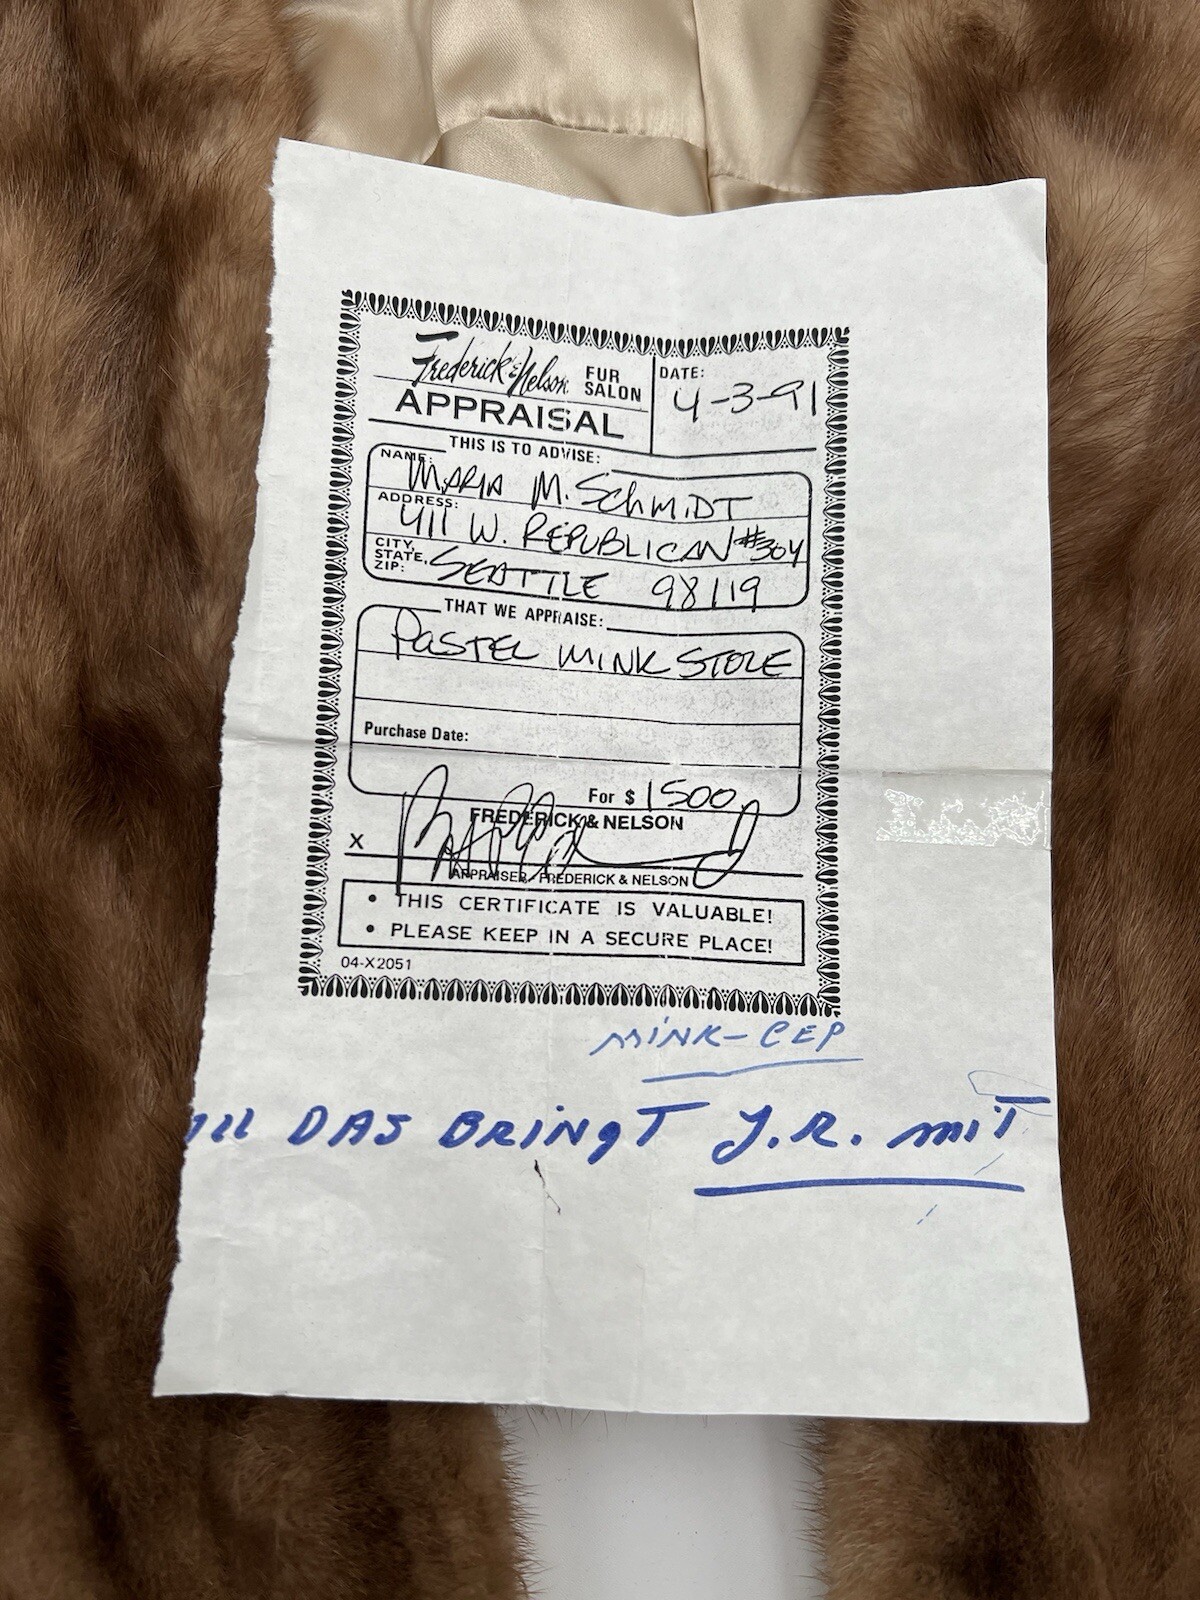 Frederick & Nelson FUR SALON
APPRAISAL
DATE: 4-3-91
THIS IS TO ADVISE:
NAME: MARIA M. SCHMIDT
ADDRESS: 411 W. REPUBLICAN #304
CITY, STATE, ZIP: SEATTLE 98119
THAT WE APPRAISE:
PASTEL MINK STOLE
Purchase Date:
For $ 1500
FREDERICK & NELSON
X
APPRAISER - FREDERICK & NELSON
• THIS CERTIFICATE IS VALUABLE!
• PLEASE KEEP IN A SECURE PLACE!
04-X2051
MINK-CEP
DAS BRINGT J.R. MIT